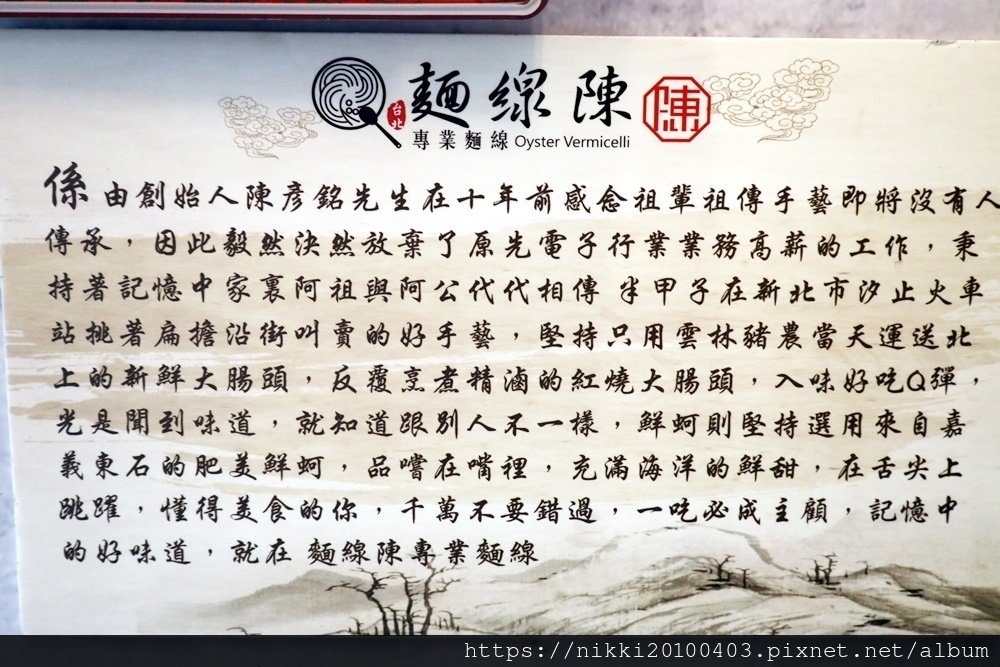 台北
麵線陳
陳
專業麵線 Oyster Vermicelli
係由創始人陳彥銘先生在十年前感念祖輩祖傳手藝即將沒有人
傳承，因此毅然決然放棄了原先電子行業業務高薪的工作，秉
持著記憶中家裏阿祖與阿公代代相傳 半甲子在新北市汐止火車
站挑著扁擔沿街叫賣的好手藝，堅持只用雲林豬農當天運送北
上的新鮮大腸頭，反覆烹煮精滷的紅燒大腸頭，入味好吃Q彈，
光是聞到味道，就知道跟別人不一樣，鮮蚵則堅持選用來自嘉
義東石的肥美鮮蚵，品嚐在嘴裡，充滿海洋的鮮甜，在舌尖上
跳躍，懂得美食的你，千萬不要錯過，一吃必成主顧，記憶中
的好味道，就在 麵線陳專業麵線
https://nikki20100403.pixnet.net/album